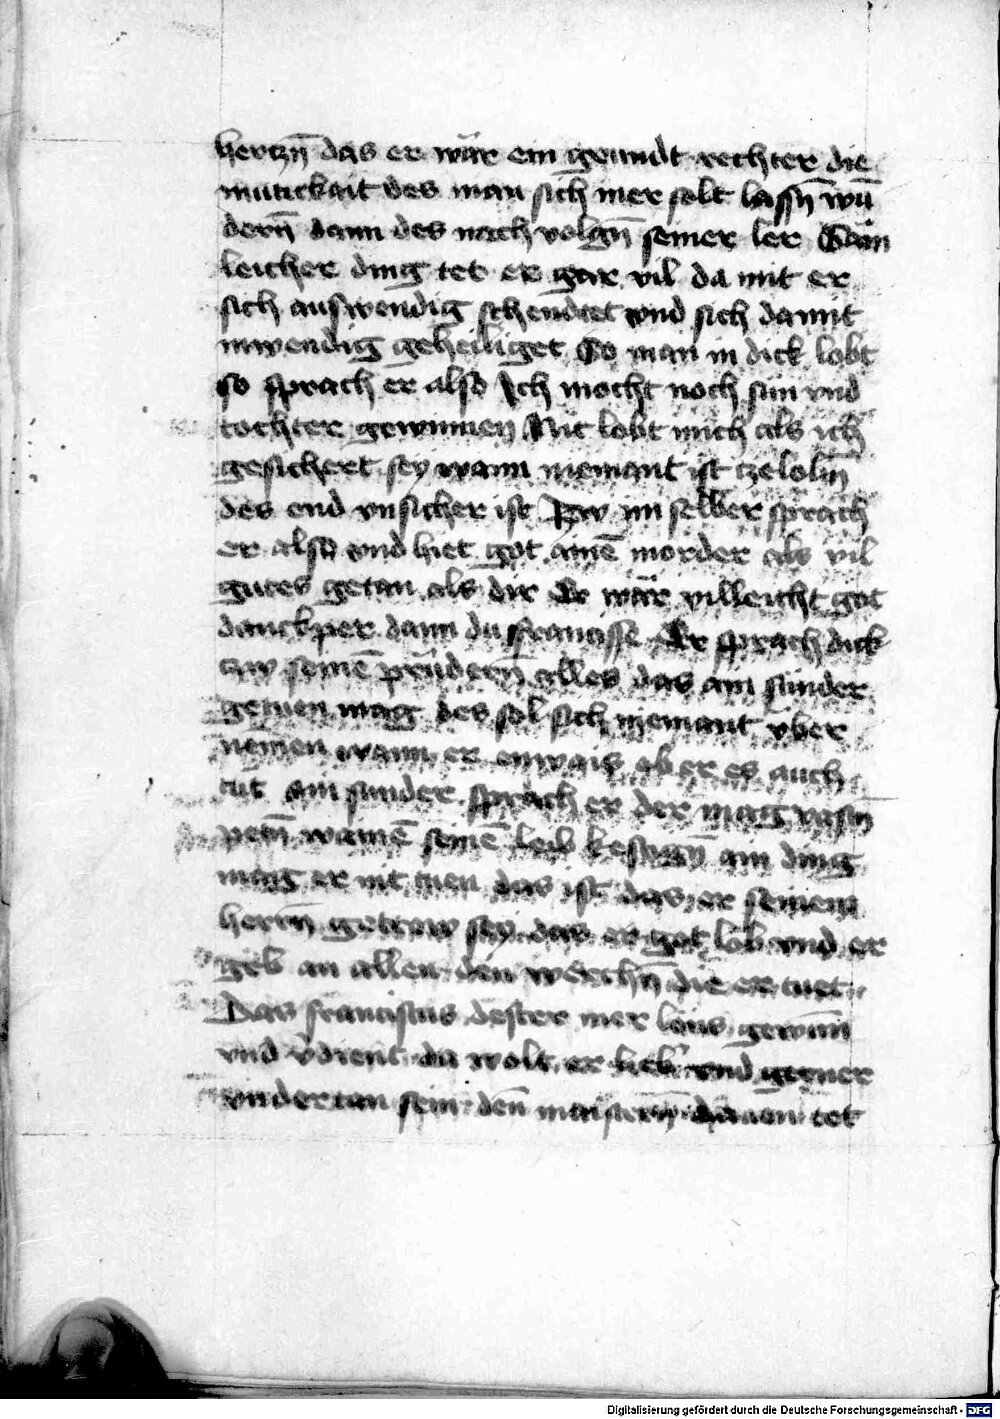 herczn̄ das er wär ein grundt rechter die
mutickait des man sich mer solt lassn̄ wū
dern̄ dann des nach volgn̄ seiner ler Solin
leicher ding tet er gar vil da mit er
sich auswendig schendtet vnd sich damit
inwendig geheiliget So man in dick lobt
so sprach er also Ich mocht noch sun vnd
tochter gewinnen Nit lobt mich als ich
gesichert sey wann niemant ist cze lobn̄
des end vnsicher ist Zw im selber sprach
er also vnd hiet got ainē morder als vil
gutes getan als dir Er wär villeicht got
danckper dann du francisse Er sprach dick
czw seinē prüdern̄ alles das ain sünder
getuen mag des sol sich niemant vber
nemen wann er enwais ob er es auch
tut ain sunder sprach er der mag vastn̄
petn̄ wainē seinē leib kestign̄ ain ding
mag er nit tuen das ist das er seinem
herrn̄ getrew sey das er got lob vnd er
geb an allen den werchn̄ die er tuet
Das franciscus dester mer lons gewinn
vnd vdient da wolt er lieb' vnd gerner
vndertan sein den̄ maistern̄ dauon tet
Digitalisierung gefördert durch die Deutsche Forschungsgemeinschaft - DFG